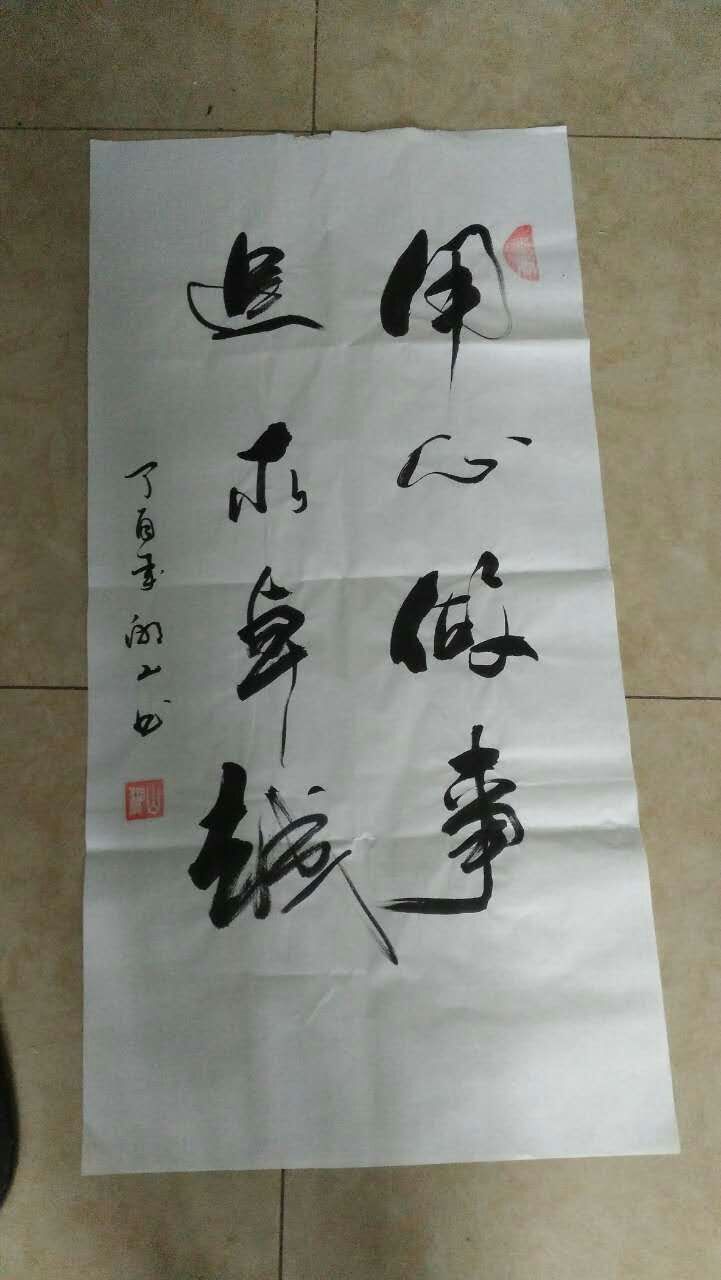 用心做事
追求卓越
丁酉季 山书